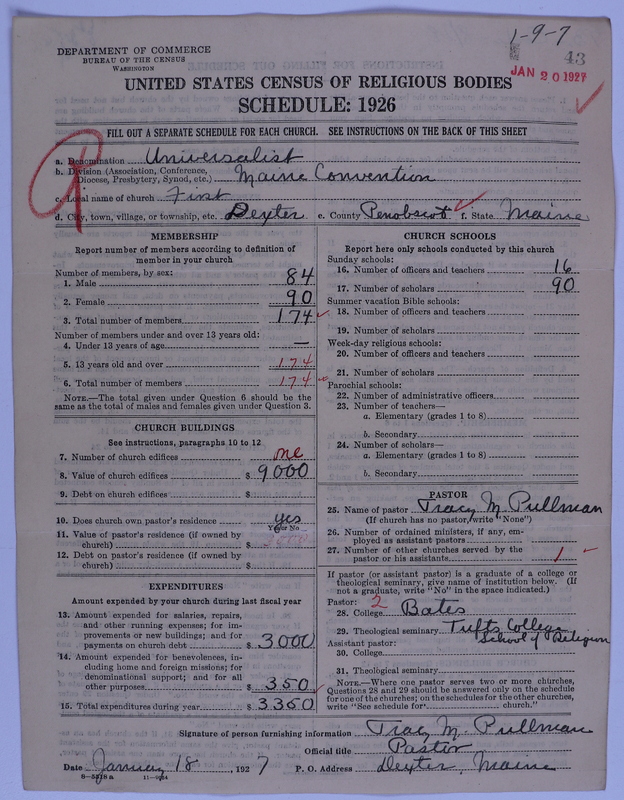 1-9-7
43
JAN 20 1927
DEPARTMENT OF COMMERCE
BUREAU OF THE CENSUS
WASHINGTON
UNITED STATES CENSUS OF RELIGIOUS BODIES
SCHEDULE: 1926
FILL OUT A SEPARATE SCHEDULE FOR EACH CHURCH. SEE INSTRUCTIONS ON THE BACK OF THIS SHEET
a. Denomination Universalist
b. Division (Association, Conference, Diocese, Presbytery, Synod, etc.) Maine Convention
c. Local name of church First
d. City, town, village, or township, etc. Dexter e. County Penobscot f. State Maine
MEMBERSHIP
Report number of members according to definition of
member in your church
Number of members, by sex:
1. Male 84
2. Female 90
3. Total number of members 174
Number of members under and over 13 years old:
4. Under 13 years of age —
5. 13 years old and over 174
6. Total number of members 174
NOTE.—The total given under Question 6 should be the
same as the total of males and females given under Question 3.
CHURCH BUILDINGS
See instructions, paragraphs 10 to 12
7. Number of church edifices one
8. Value of church edifices $ 9000
9. Debt on church edifices $
10. Does church own pastor's residence yes
Yes or No
11. Value of pastor's residence (if owned by
church) $
12. Debt on pastor's residence (if owned by
church) $
EXPENDITURES
Amount expended by your church during last fiscal year
13. Amount expended for salaries, repairs,
and other running expenses; for im-
provements or new buildings; and for
payments on church debt $ 3000
14. Amount expended for benevolences, in-
cluding home and foreign missions; for
denominational support; and for all
other purposes $ 350
15. Total expenditures during year $ 3350
CHURCH SCHOOLS
Report here only schools conducted by this church
Sunday schools:
16. Number of officers and teachers 16
17. Number of scholars 90
Summer vacation Bible schools:
18. Number of officers and teachers
19. Number of scholars
Week-day religious schools:
20. Number of officers and teachers
21. Number of scholars
Parochial schools:
22. Number of administrative officers
23. Number of teachers—
a. Elementary (grades 1 to 8)
b. Secondary
24. Number of scholars—
a. Elementary (grades 1 to 8)
b. Secondary
PASTOR
25. Name of pastor Tracy M. Pullman
(If church has no pastor, write "None")
26. Number of ordained ministers, if any, em-
ployed as assistant pastors
27. Number of other churches served by the
pastor or his assistants 1
If pastor (or assistant pastor) is a graduate of a college or
theological seminary, give name of institution below. (If
not a graduate, write "No" in the space indicated.)
Pastor: 2
28. College Bates
29. Theological seminary Tufts College
School of Religion
Assistant pastor:
30. College
31. Theological seminary
NOTE.—Where one pastor serves two or more churches,
Questions 28 and 29 should be answered only on the schedule
for one of the churches; on the schedules for the other churches,
write "See schedule for church."
Signature of person furnishing information Tracy M. Pullman
Official title Pastor
Date January 18, 1927 P. O. Address Dexter, Maine